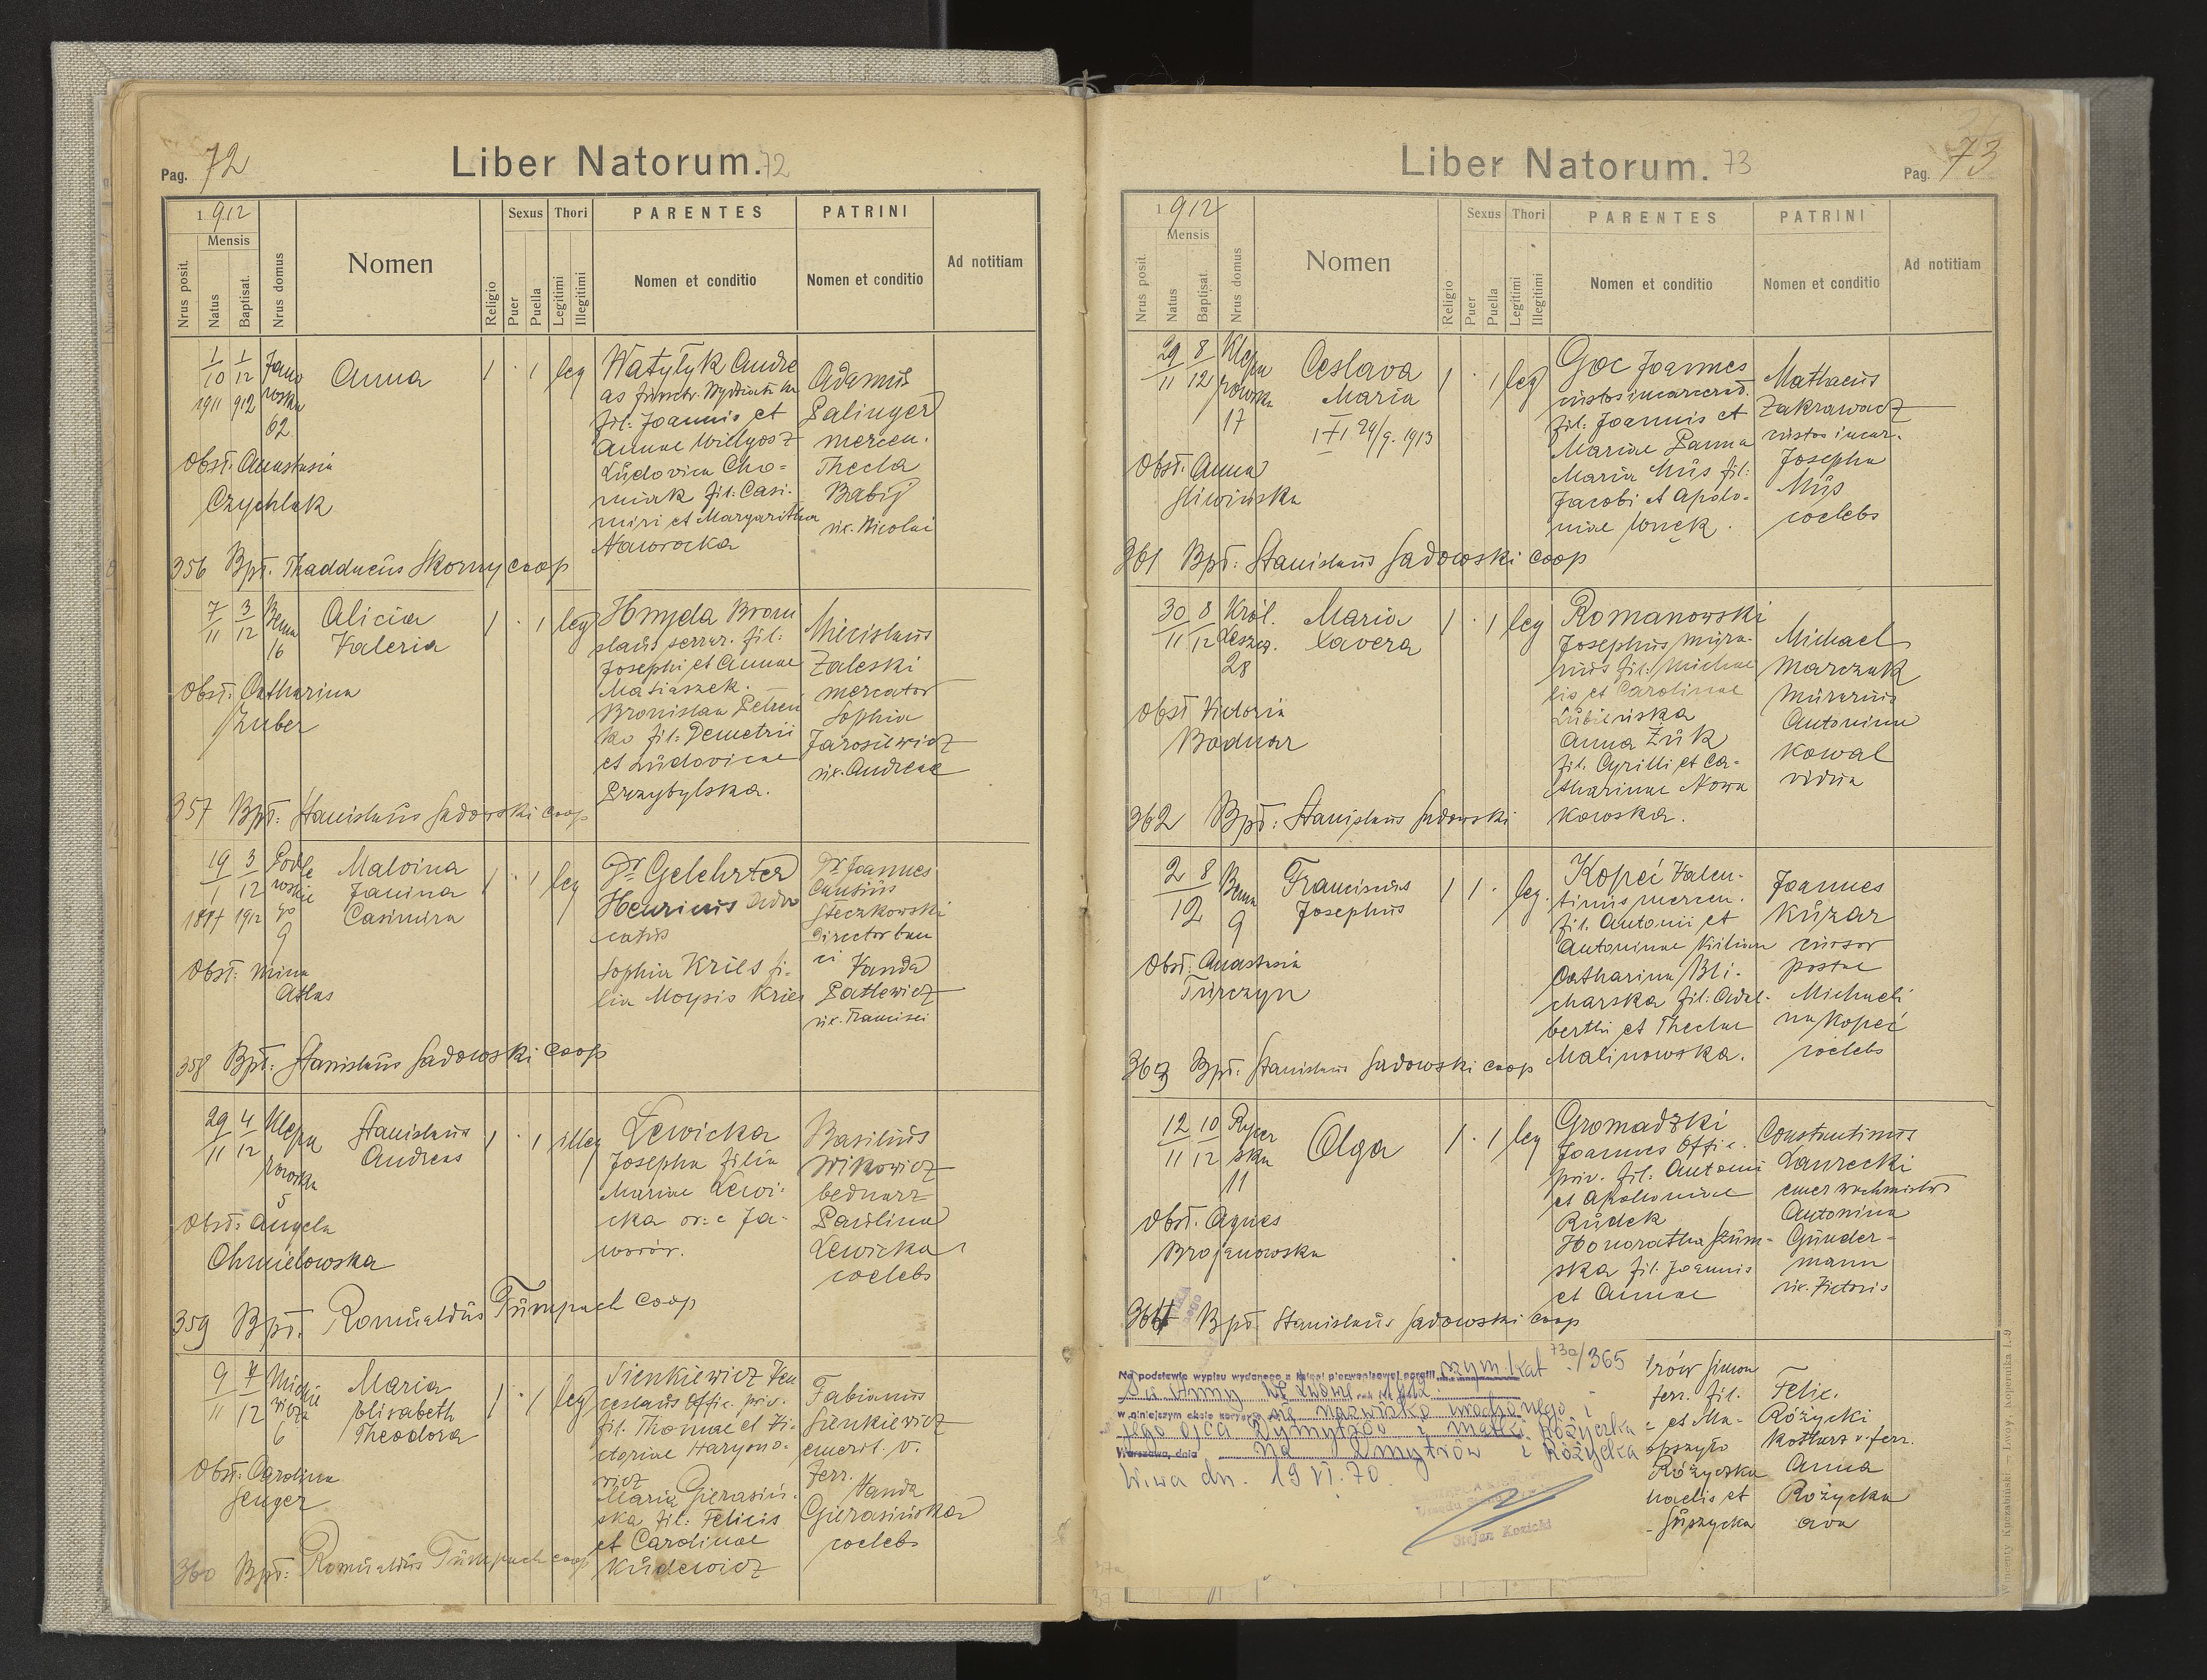 Pag. 72
Liber Natorum. 72
1 912
Mensis
Nrus posit.
Natus
Baptisat.
Nrus domus
Nomen
Religio
Sexus
Puer
Puella
Thori
Legitimi
Illegitimi
PARENTES
Nomen et conditio
PATRINI
Nomen et conditio
Ad notitiam
1/10 1911
1/12 912
62
Anna
1 · 1 leg
Watylyk Andre
fil: Joannis et
Annae
Ludovica Cho=
miak fil: Casi-
miri et Margaritha
Nawrocka
Adamus
Palinger
mercen.
Thecla
Babij
ux. Nicolai
Obst: Anastasia
Czychlak
356 Bpt. Thaddaeus Skorny coop
7/11
3/12
Bema
16
Alicia
Valeria
1 · 1 leg
Hmyda Broni
slaus serrar. fil:
Josephi et Annae
Matiaszek.
Bronislaa Petren
ko fil: Demetrii
et Ludovicae
Przybylska.
Miecislaus
Zaleski
mercator
Sophia
Jarosiewicz
ux. Andreae
Obst: Catharina
Huber
357 Bpt: Stanislaus Sadowski coop
19/1
3/12 1912
9
Malvina
Janina
Casimira
1 · 1 leg
Dr Gelehrter
Henricus Advo
catus
Sophia Kries fi-
lia Moysis Kries
Dr Joannes
Cantius
Steczkowski
Director ban
ci Vanda
Patlewicz
ux. Francisci
Obst: Mina
Atlas
358 Bpt: Stanislaus Sadowski coop
29/11
4/12
Klepa
rowska
5
Stanislaus
Andreas
1 · 1 illeg
Lewicka
Josepha filia
Mariae Lewi-
cka or: e Ja-
worów.
Basilius
Wikowicz
bednarz
Paulina
Lewicka
coelebs
Obst: Angela
Chmielowska
359 Bpt. Romualdus Tumpach coop
9/11
7/12
6
Maria
Elisabeth
Theodora
1 · 1 leg
Sienkiewicz Ven
ceslaus Offic. priv.
fil. Thomae et Vi-
ctoriae Haryno-
wicz
Maria Gierasiń-
ska fil: Felicis
et Carolinae
Kudewicz
Fabianus
Sienkiewicz
emerit. v.
Ferr.
Vanda
Gierasińska
coelebs
Obst: Carolina
Senger
360 Bpt: Romualdus Tumpach coop
Liber Natorum. 73
Pag. 73
1 912
Mensis
Nrus posit.
Natus
Baptisat.
Nrus domus
Nomen
Religio
Sexus
Puer
Puella
Thori
Legitimi
Illegitimi
PARENTES
Nomen et conditio
PATRINI
Nomen et conditio
Ad notitiam
29/11
8/12
Klepa
rowska
17
Ceslava
Maria
24/9. 1913
1 · 1 leg
Goc Joannes
custos incarcerat.
fil: Joannis et
Mariae Panna
Maria Mus fil:
Jacobi et Apolo-
niae
Mathaeus
Zakrawacz
custos incar.
Josepha
Mus
coelebs
Obst: Anna
Sliwińska
361 Bpt: Stanislaus Sadowski coop
30/11
8/12
Król.
Leszcz.
28
Maria
Xavera
1 · 1 leg
Romanowski
Josephus mura-
rius fil: Michae
lis et Carolinae
Lubieńska
Anna Żuk
fil. Cyrilli et Ca-
tharinae Nowa
kowska.
Michael
Marczak
murarius
Antonina
Kowal
vidua
Obst Victoria
Bodnar
362 Bpt: Stanislaus Sadowski
2 8/12
Bema
9
Franciscus
Josephus
1 1 · leg.
Kopeć Valen-
tinus mercen.
fil. Antonii et
Antoninae Kilian
Catharina Bli-
charska fil: Adal-
berthi et Theclae
Malinowska.
Joannes
Kuzar
cursor
postae
Michaeli
na Kopeć
coelebs
Obst: Anastasia
Turczyn
363 Bpt: Stanislaus Sadowski coop
12/11
10/12
11
Olga
1 · 1 leg
Gromadzki
Joannes Offic.
priv. fil: Antonii
et Apolloniae
Rudek
Honoratha Szum-
ska fil. Joannis
et Annae
Constantinus
Lawrecki
emer wachmistrz
Antonina
Gunder-
mann
ux. Victoris
Obst. Agnes
Brojanowska
364 Bpt Stanislaus Sadowski coop
73a/365
Na podstawie wypisu wydanego z księgi pierwopisowej parafii rzym. kat
Św Anny we Lwowie
w niniejszym akcie koryguje się nazwisko urodzonego i
jego ojca Dymytrów i matki Różycka
na Dmytrów i Różycka
Warszawa, dnia
W-wa dn. 19 VI. 70
Stefan Kozicki
trów Simon
ferr. fil.
et Ma-
Różycka
haelis et
Felix.
Różycki
Kotlarz v. ferr.
Anna
Różycka
ava
Wincenty Kuczabiński — Lwów, Kopernika l. 9